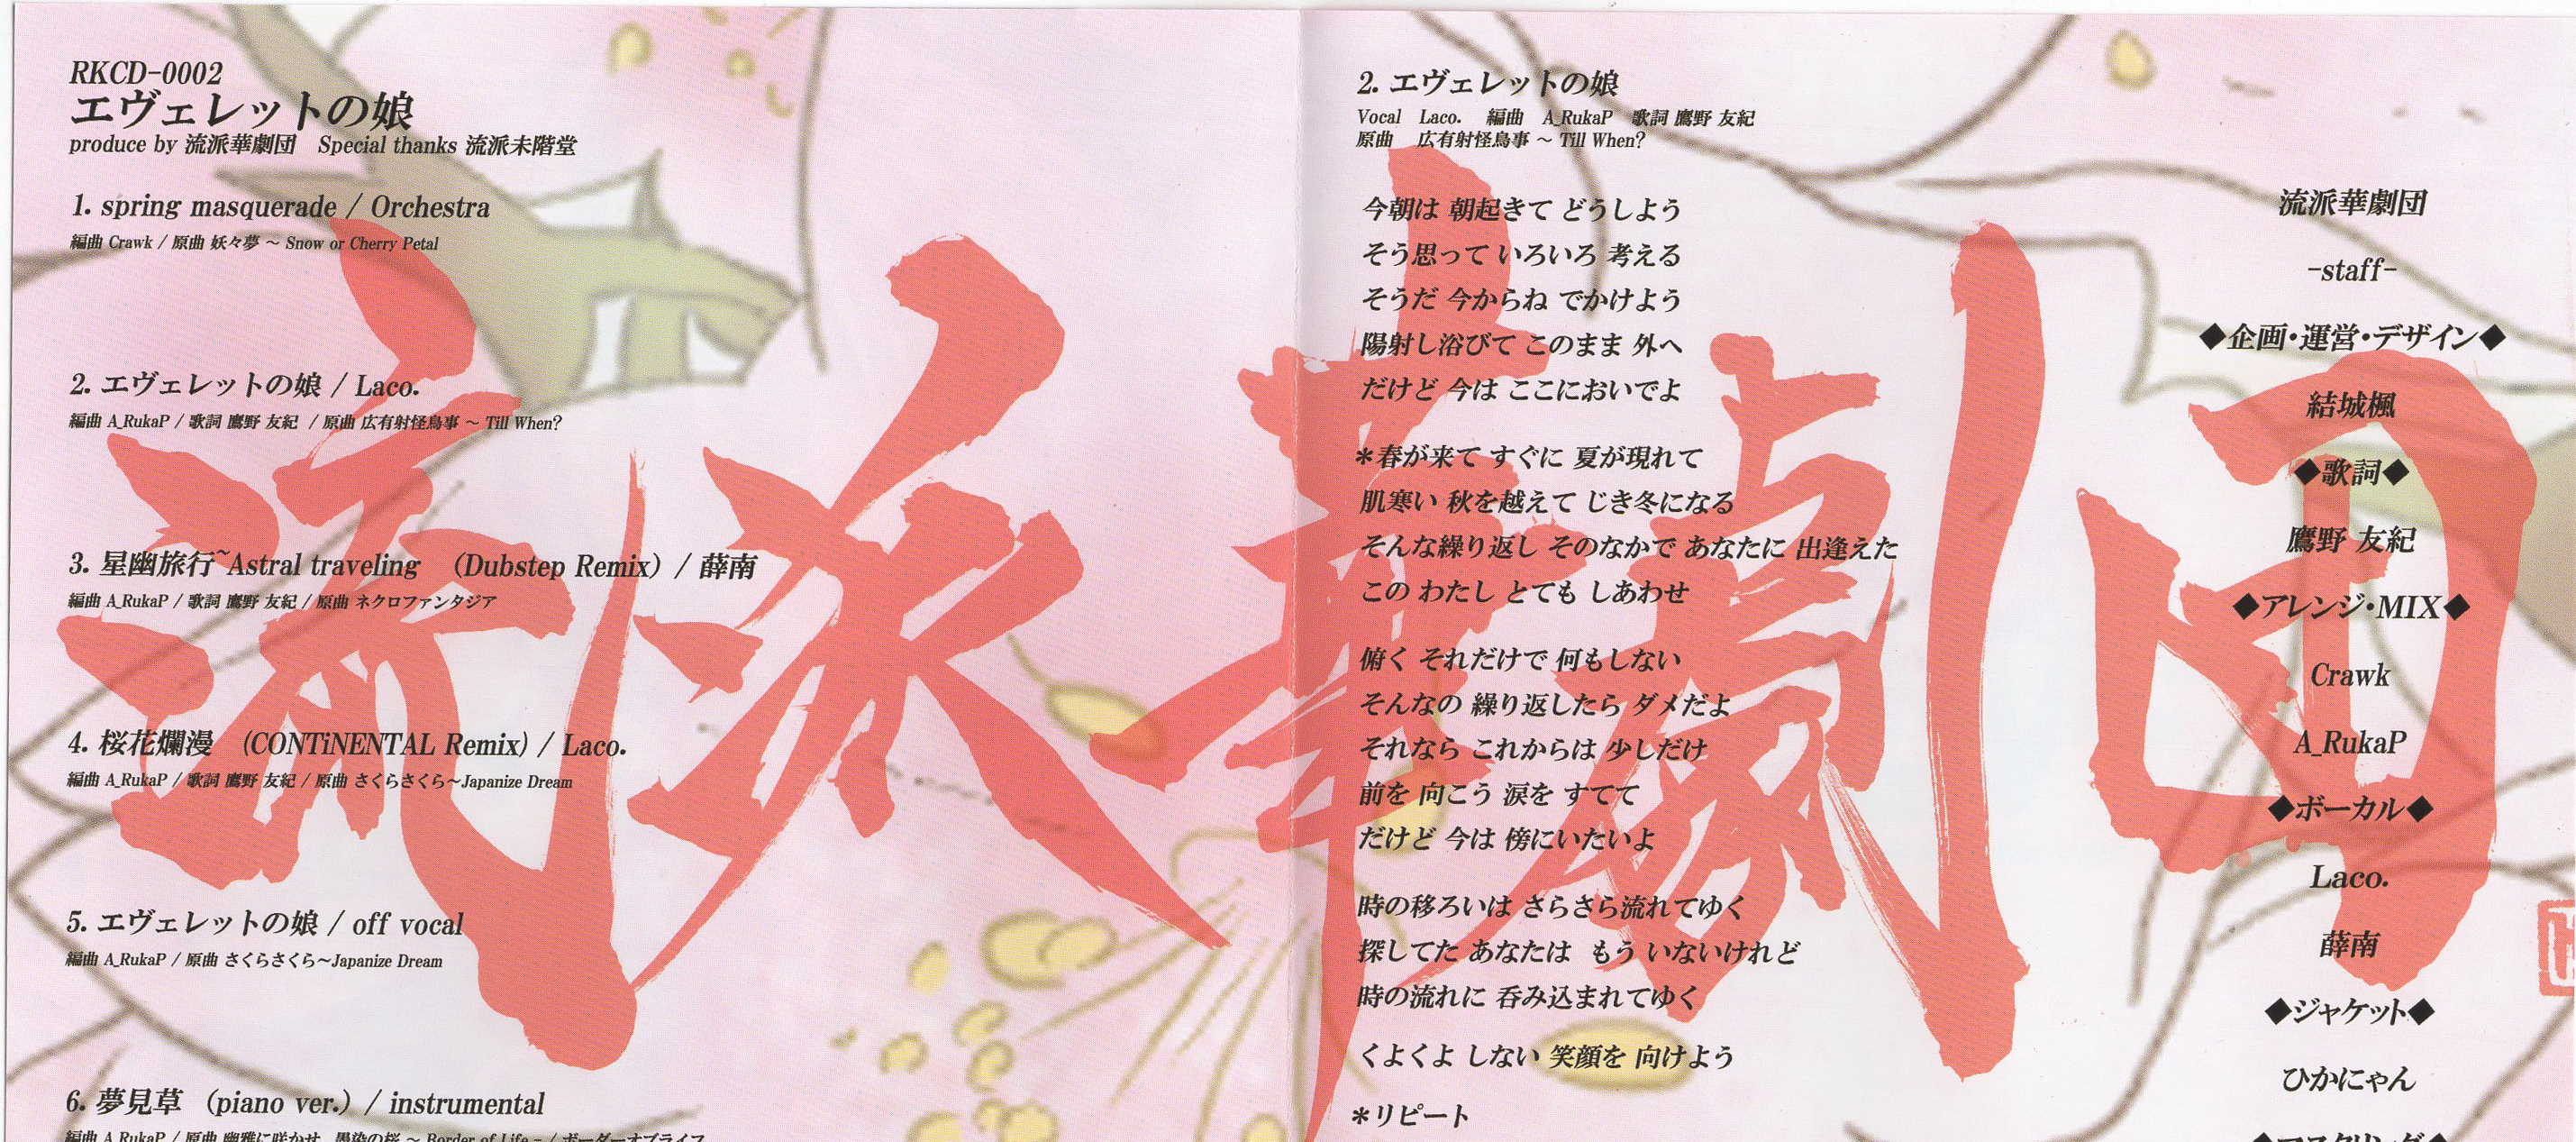 RKCD-0002
エヴェレットの娘
produce by 流派華劇団　Special thanks 流派未階堂
1. spring masquerade / Orchestra
編曲 Crawk / 原曲 妖々夢 ～ Snow or Cherry Petal
2. エヴェレットの娘 / Laco.
編曲 A_RukaP / 歌詞 鷹野 友紀 / 原曲 広有射怪鳥事 ～ Till When?
3. 星幽旅行~Astral traveling　(Dubstep Remix) / 薛南
編曲 A_RukaP / 歌詞 鷹野 友紀 / 原曲 ネクロファンタジア
4. 桜花爛漫　(CONTiNENTAL Remix) / Laco.
編曲 A_RukaP / 歌詞 鷹野 友紀 / 原曲 さくらさくら～Japanize Dream
5. エヴェレットの娘 / off vocal
編曲 A_RukaP / 原曲 さくらさくら～Japanize Dream
6. 夢見草　(piano ver.) / instrumental
編曲 A_RukaP / 原曲 幽雅に咲かせ、墨染の桜 ～ Border of Life - / ボーダーオブライフ
流派華劇団
2. エヴェレットの娘
Vocal　Laco.　編曲　A_RukaP　歌詞 鷹野 友紀
原曲　広有射怪鳥事 ～ Till When?
今朝は 朝起きて どうしよう
そう思って いろいろ 考える
そうだ 今からね でかけよう
陽射し浴びて このまま 外へ
だけど 今は ここにおいでよ
＊春が来て すぐに 夏が現れて
肌寒い 秋を越えて じき冬になる
そんな繰り返し そのなかで あなたに 出逢えた
この わたし とても しあわせ
俯く それだけで 何もしない
そんなの 繰り返したら ダメだよ
それなら これからは 少しだけ
前を 向こう 涙を すてて
だけど 今は 傍にいたいよ
時の移ろいは さらさら流れてゆく
探してた あなたは もう いないけれど
時の流れに 呑み込まれてゆく
くよくよ しない 笑顔を 向けよう
＊リピート
流派華劇団
-staff-
◆企画・運営・デザイン◆
結城楓
◆歌詞◆
鷹野 友紀
◆アレンジ・MIX◆
Crawk
A_RukaP
◆ボーカル◆
Laco.
薛南
◆ジャケット◆
ひかにゃん
◆マスタリング◆